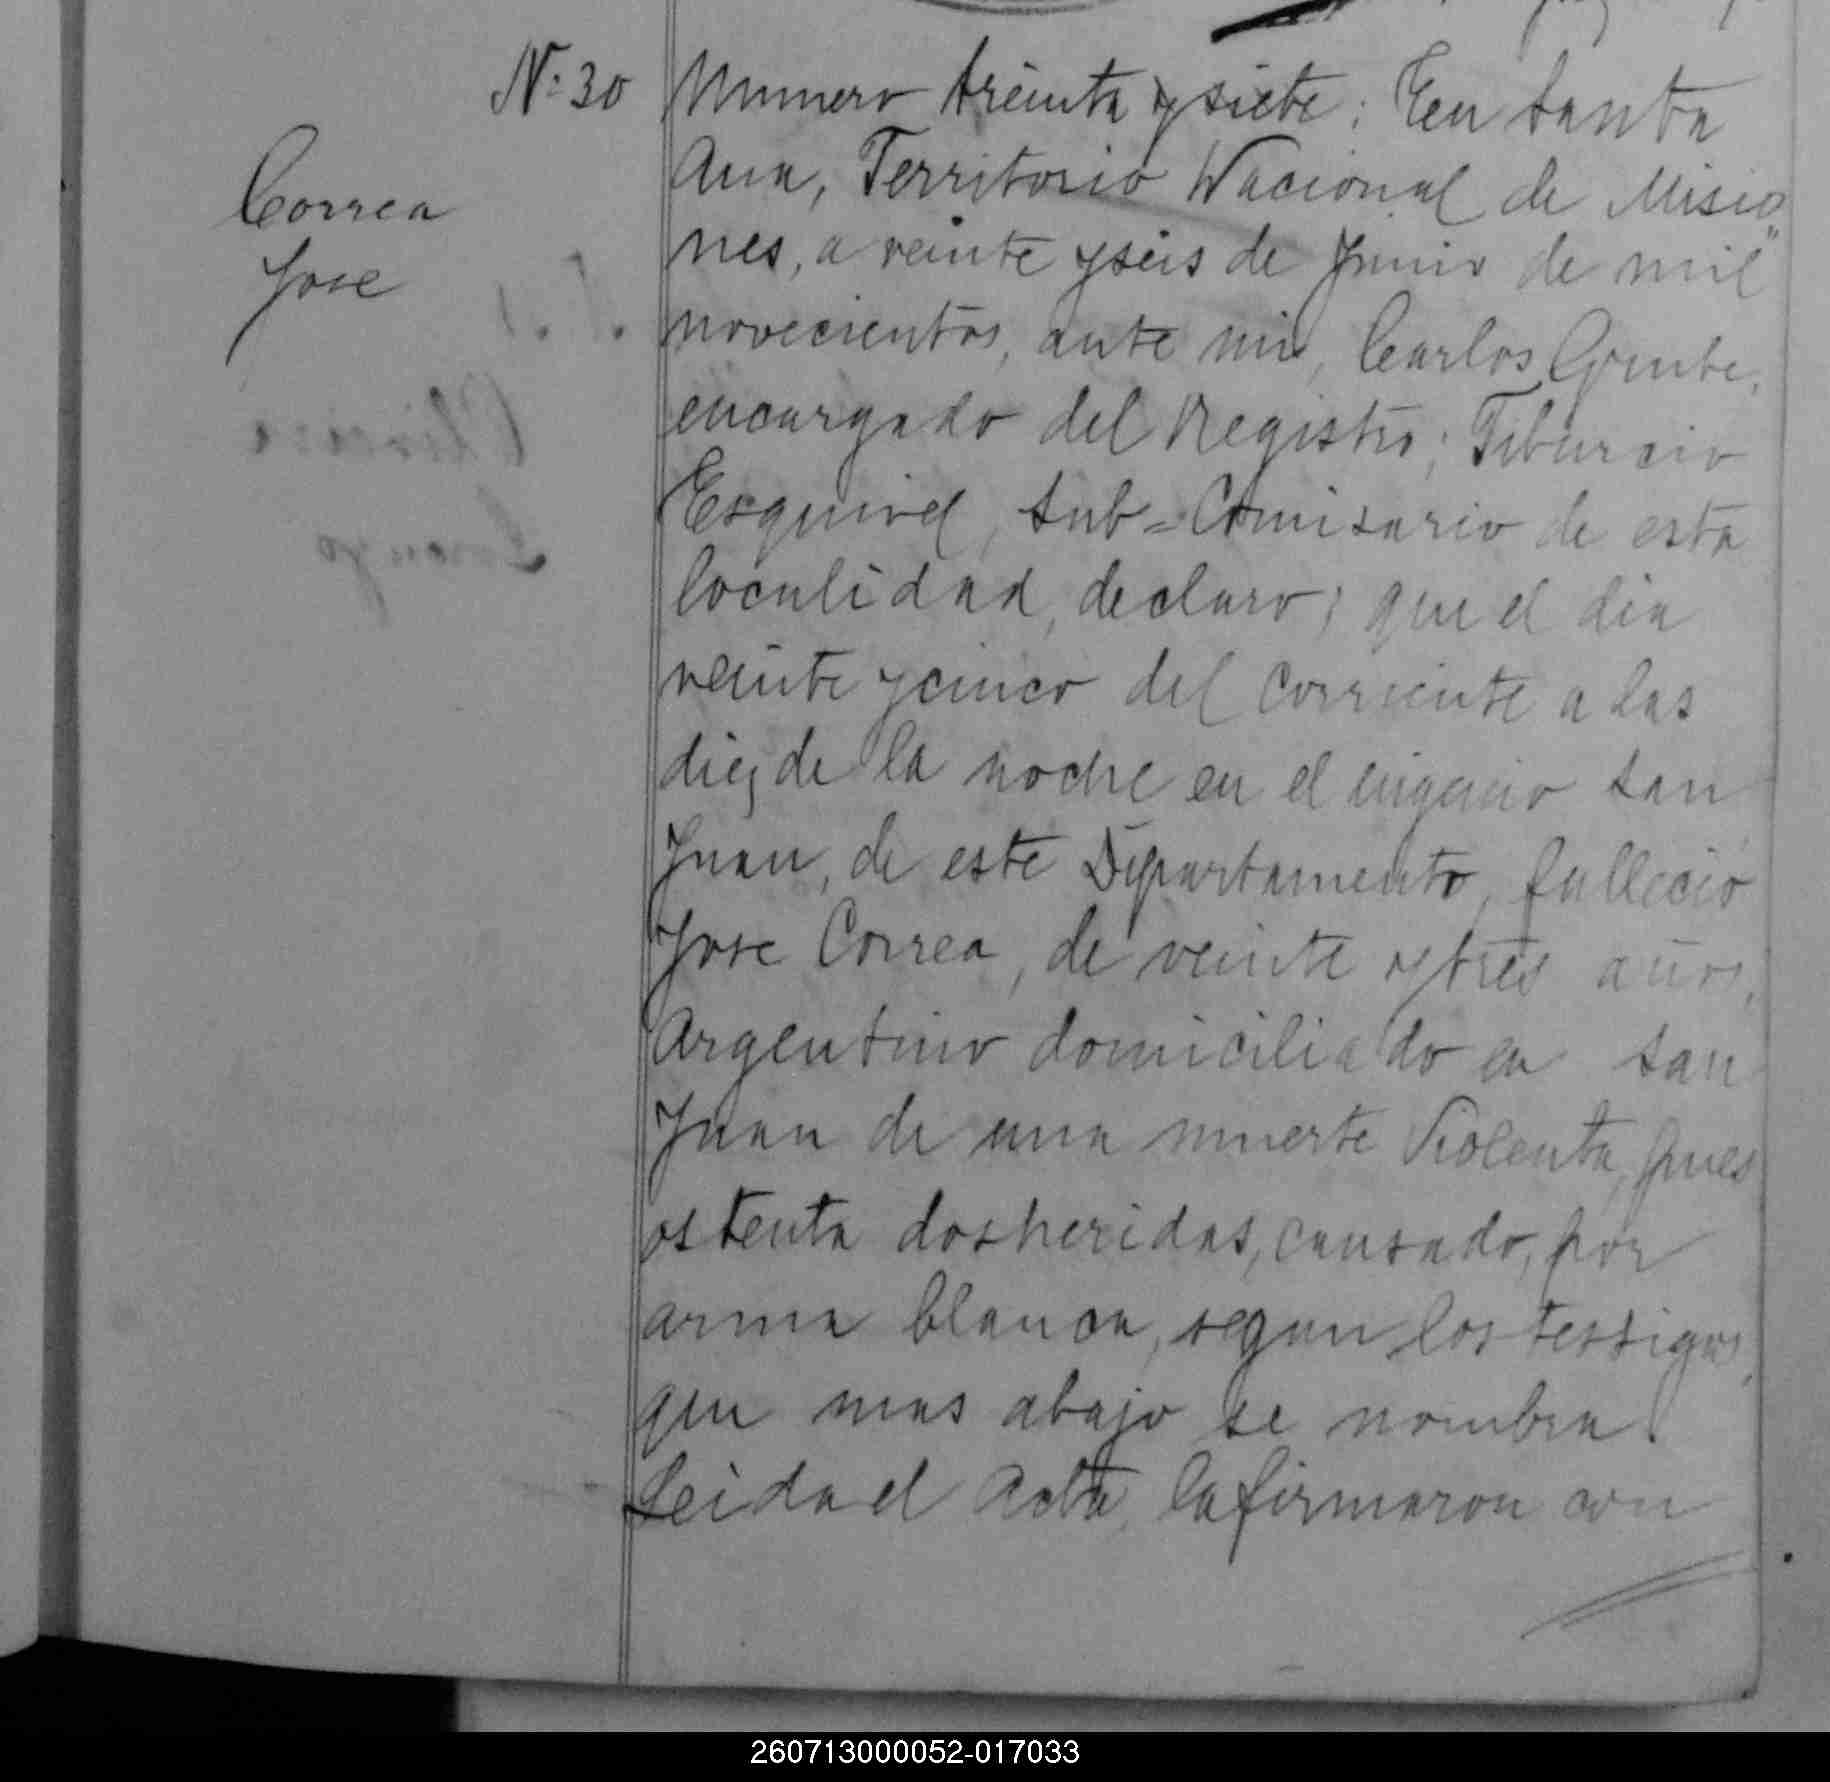 Nº 30
Correa
Jose
Numero treinta y siete: En Santa
Ana, Territorio Nacional de Misio
nes, a veinte y seis de Junio de mil
novecientos, ante mi, Carlos
encargado del Registro; Tiburcio
Esquivel, Sub=Comisario de esta
localidad, declaro; que el dia
veinte y cinco del corriente a las
diez de la noche en el ingenio San
Juan, de este Departamento, falleció
Jose Correa, de veinte y tres años,
Argentino domiciliado en San
Juan de una muerte Violenta, pues
ostenta dos heridas, causado, por
arma blanca, segun los testigos,
que mas abajo se nombra.
Leida el Acta, la firmaron con
260713000052-017033